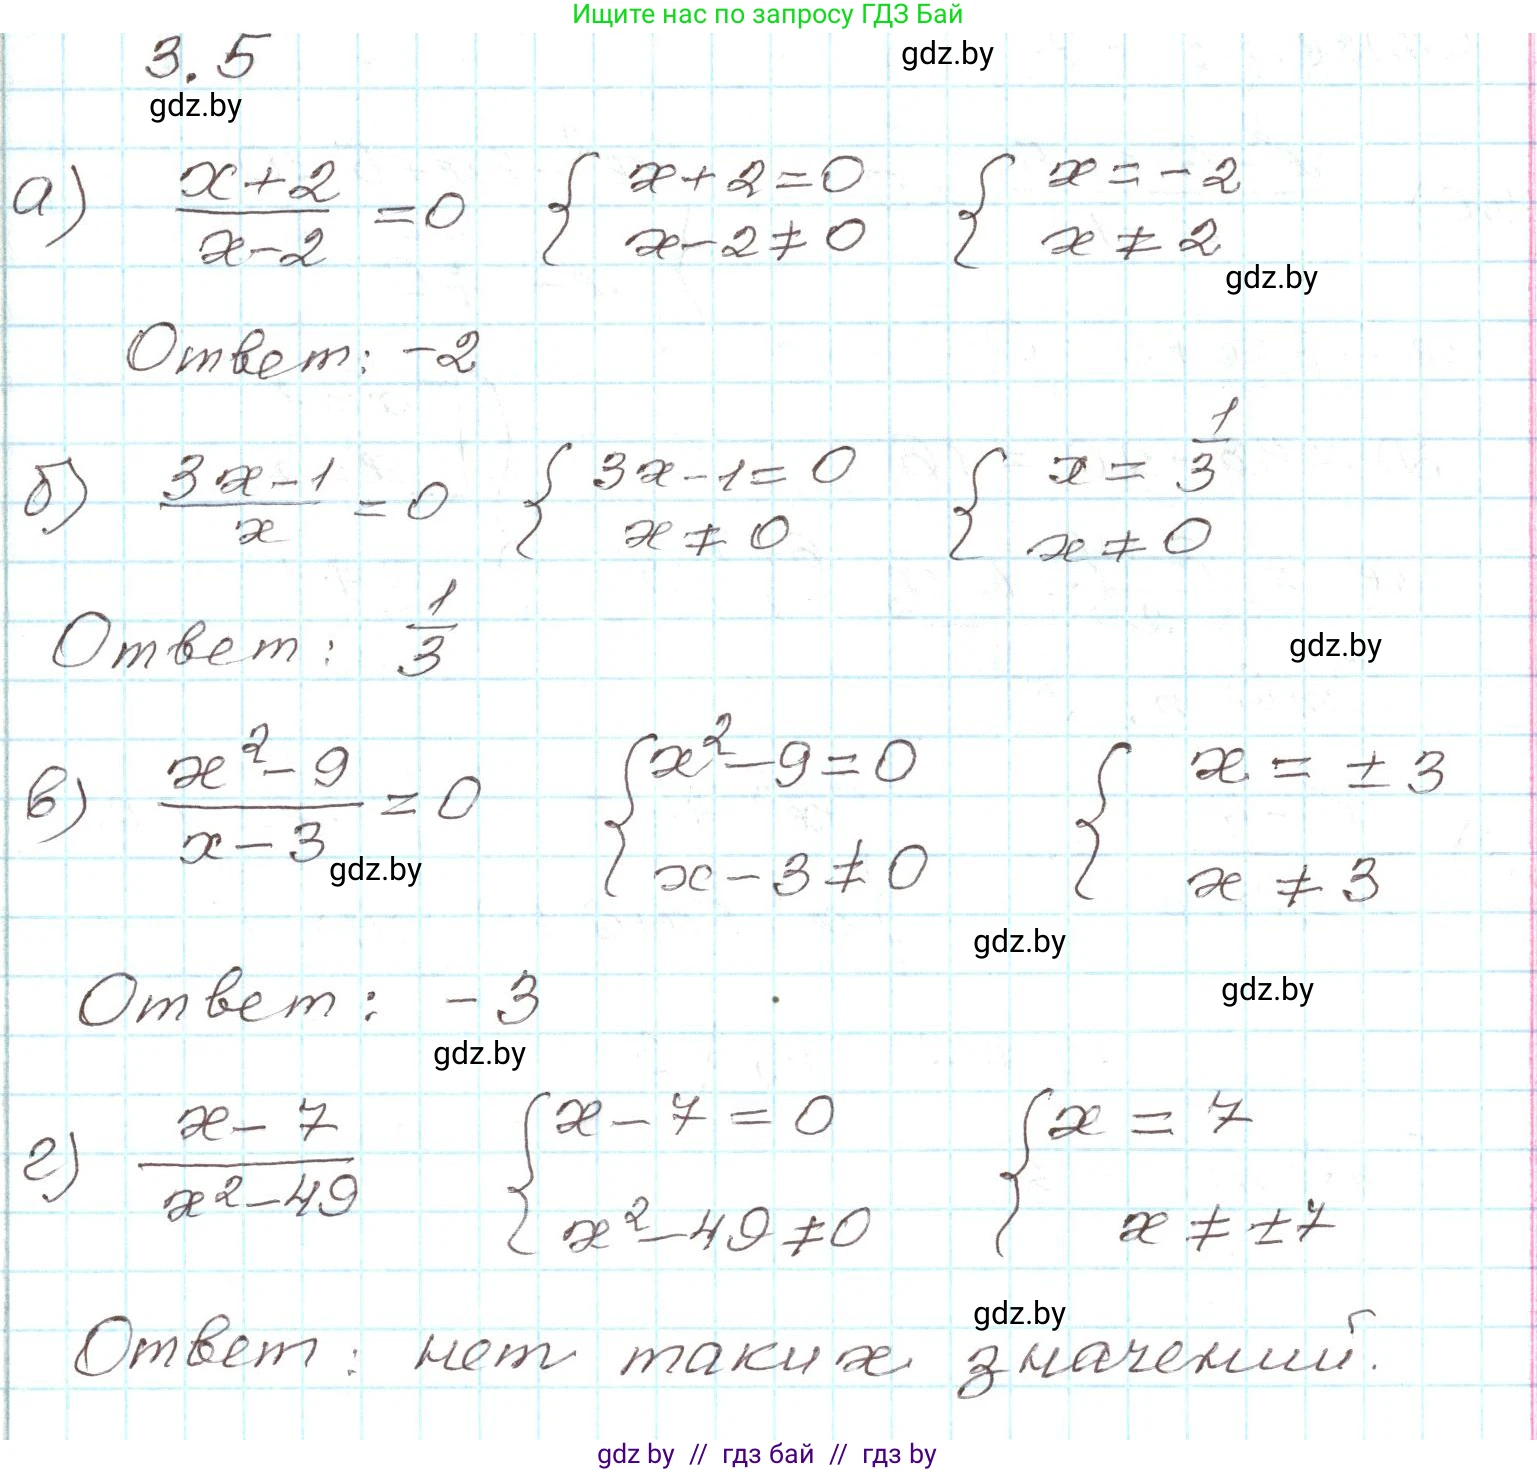 Ищите нас по запросу ГДЗ Бай
3.5
gdz.by
gdz.by
а) (x+2)/(x-2) = 0 { x+2=0 x-2≠0 { x=-2 x≠2
gdz.by
Ответ: -2
б) (3x-1)/x = 0 { 3x-1=0 x≠0 { x=1/3 x≠0
Ответ: 1/3
gdz.by
в) (x²-9)/(x-3) = 0 { x²-9=0 x-3≠0 { x=±3 x≠3
gdz.by
gdz.by
Ответ: -3
gdz.by
gdz.by
г) (x-7)/(x²-49) { x-7=0 x²-49≠0 { x=7 x≠±7
gdz.by
Ответ: нет таких значений.
gdz by // гдз бай // гдз by